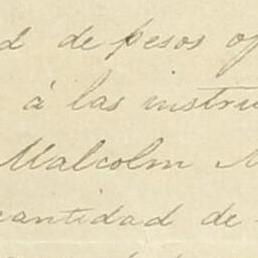 d de pesos of
á las instru
Malcolm M
cantidad de